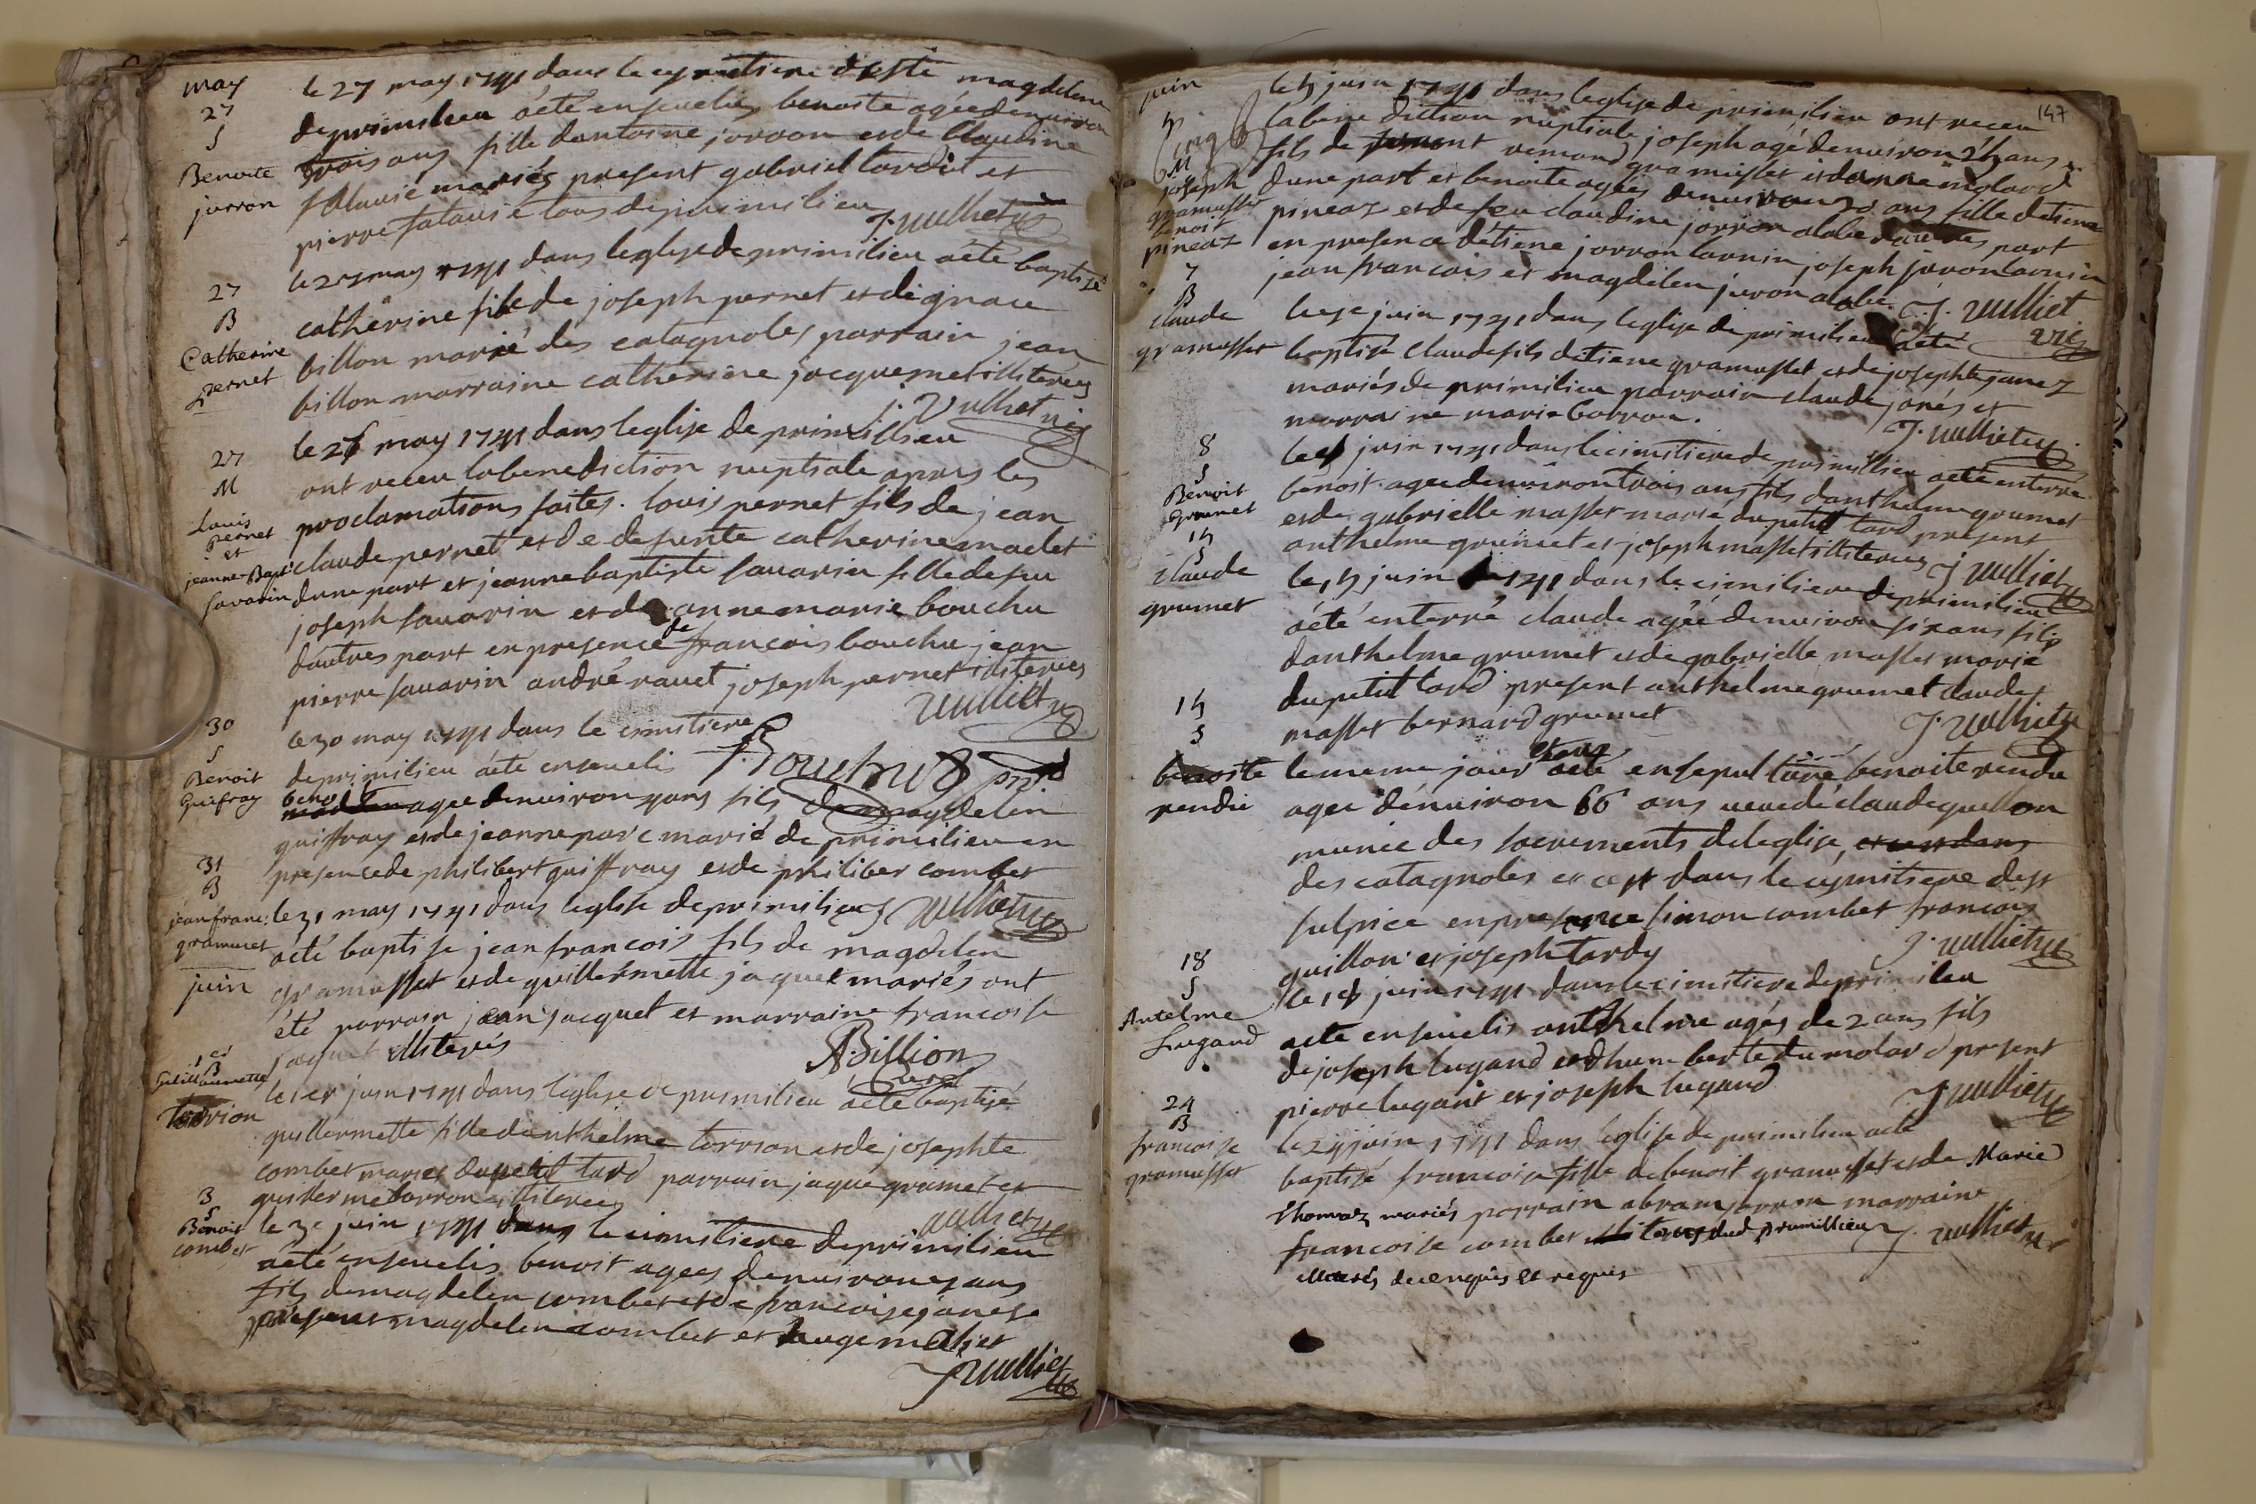 may
27
S
Benoite
jorron
le 27 may 1741 dans le cymitiere d ste magdelene
de primilieu a été ensevelies benoite agée denviron
trois ans fille dantoine jorron et de Claudine
falavié mariés present gabriel tardit et
pierre falavié tous de primilieu
J. vulliet vic
27
B
Catherine
pernet
le 27 may 1741 dans leglise de primilieu a été baptisé
catherine fille de joseph pernet et de
billon marié des catagnoles parrain jean
billon marraine catherine jacquemet illiterés
J. Vulliet vic
27
M
Louis
pernet
et
jeanne-Bapt
savarin
le 27 may 1741 dans leglise de primillieu
ont receu la benediction nuptiale apres les
proclamations faites. louis pernet fils de jean
claude pernet et de defunte catherine maclet
dune part et jeanne baptiste savarin fille de feu
joseph savarin et de anne marie bouchu
dautres part en presence de francois bouchu jean
pierre savarin andré ravet joseph pernet illiterés
vulliet vic
30
S
Benoit
Guifray
le 30 may 1741 dans le cimitiere
de primilieu a été ensevelis
F. Bouchu
benoit agee denviron ans fils de magdelin
guiffray et de jeanne marié de primilieu en
presence de philibert guiffray et de philiber combet
vulliet vic
31
B
jean franc:
gramuset
le 31 may 1741 dans leglise de primilieu
a été baptisé jean francois fils de magdelin
gramusset et de guillermette jaquet mariés ont
été parrain jean jacquet et marraine francoise
jaquet illiterés
A. Billion
juin
1er
B
Guillaumette
torrion
le 1er juin 1741 dans leglise de primilieu a été baptisé
guillermette fille danthelme torrion et de josephte
combet mariés du petit tard parrain jaque grumet et
guillermette illiterés
vulliet vic
3
S
Benoit
combet
le 3e juin 1741 dans le cimitiere de primilieu
a été ensevelis benoit agees denviron ans
fils de magdelin combet et de francoise
present magdelin combet et
J vulliet vic
147
juin
M
joseph
gramusset
benoit
pineaz
le juin 1741 dans leglise de primilieu ont receu
la bene diction nuptiale joseph agé denviron ans
fils de remond gramusset et danne molard
dune part et benoite agées denviron ans fille detiene
pineaz et de feu claudine jorron alabe dautres part
en presence détiene jorron joseph jorron
jean francois et magdelen joron alabe. J. vulliet
vic
7
B
claude
gramusset
le 7e juin 1741 dans leglise de primilieu a été
baptisé claude fils detiene gramusset et de josephte janez
mariés de primilieu parrain claude janés et
marraine marie
J. vulliet vic
8
S
Benoit
Grumet
le 8 juin 1741 dans le cimitiere de primillieu a été enterré
benoit agee denviron trois ans fils danthelme grumet
et de gabrielle masset marié du petit tard present
anthelme grumet et joseph masset illiterés J vulliet vic
S
Claude
grumet
le juin 1741 dans le cimitiere de primilieu
a été enterré claude agéé denviron six ans fils
danthelme grumet et de gabrielle masset marié
du petit tard present anthelme grumet claude
masset bernard grumet
J. vulliet vic
S
benoite
rendu
le meme jour a été ensepulturé benoite rendu
agee denviron 66 ans veuve de claude guillon
munie des sacrements de leglise, et cest dans
des catagnoles et cest dans le cymitiere de st
sulpice en presence simon combet francois
guillon et joseph tardy
J. vulliet vic
18
S
Antelme
Lugand
le 18 juin 1741 dans le cimitiere de primilieu
a été ensevelis anthelme agés de 2 ans fils
de joseph lugand et dhumberte du molard present
pierre lugant et joseph lugand
J vulliet vic
24
B
francoise
gramusset
le 24 juin 1741 dans leglise de primilieu a été
baptisé francoise fille de benoit gramusset et de Marie
Thomaz mariés parrain abram jorron marraine
francoise combet illiterés dud primillieu J. vulliet vic
illiterés de enquis et requis